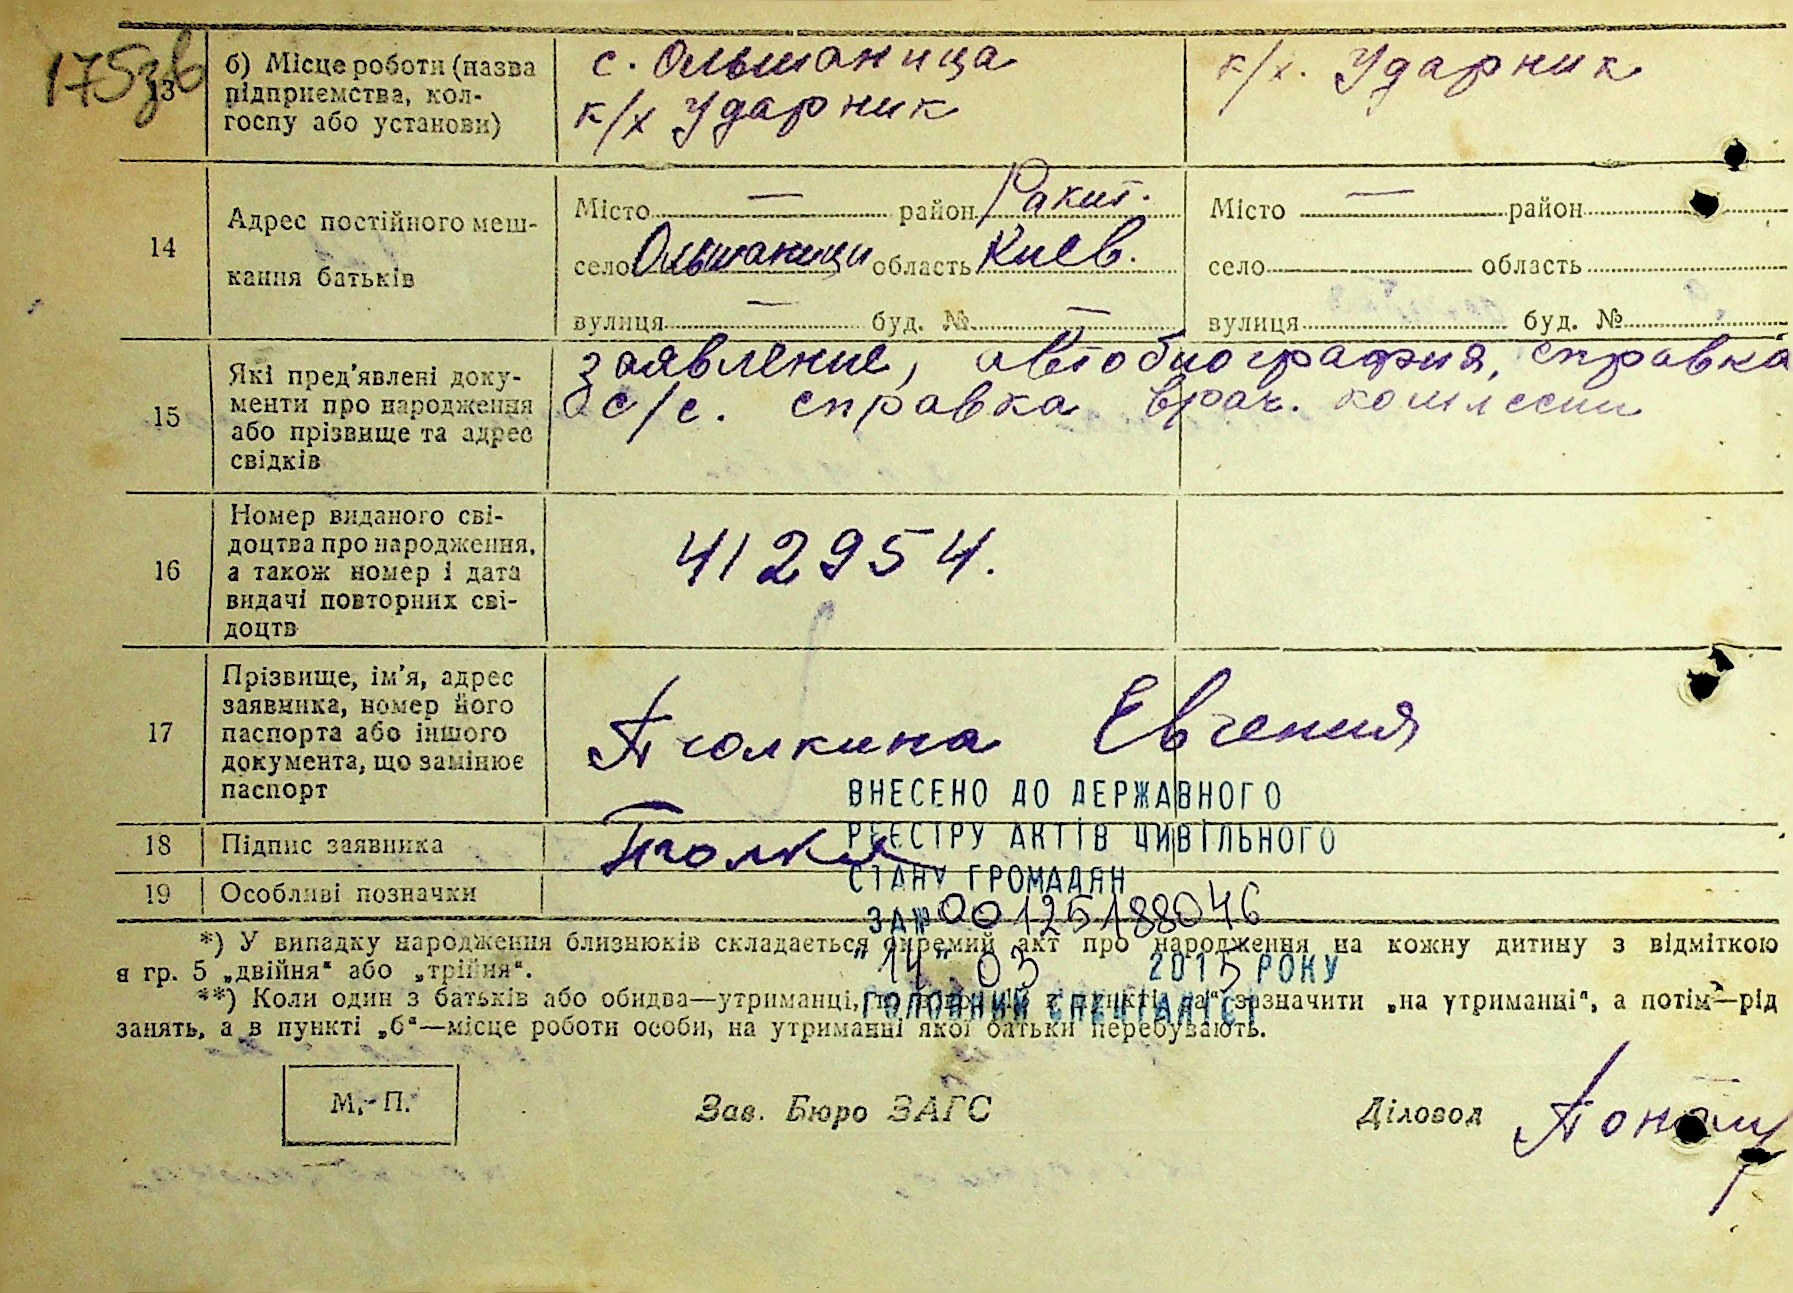 175зв
13
б) Місце роботи (назва
підприємства, кол-
госпу або установи)
с. Ольшаница
к/х Ударник
к/х. Ударник
14
Адрес постійного меш-
кання батьків
Місто — район Ракит.
село Ольшаници область Киев.
вулиця — буд. № —
Місто — район
село область
вулиця буд. №
15
Які пред'явлені доку-
менти про народження
або прізвище та адрес
свідків
заявление, автобиография, справка
с/с. справка врач. комлесии
16
Номер виданого сві-
доцтва про народження,
а також номер і дата
видачі повторних сві-
доцтв
412954.
17
Прізвище, ім'я, адрес
заявника, номер його
паспорта або іншого
документа, що замінює
паспорт
Пчолкина Евгения
18
Підпис заявника
Пчолки
19
Особливі позначки
ВНЕСЕНО ДО ДЕРЖАВНОГО
РЕЄСТРУ АКТІВ ЦИВІЛЬНОГО
СТАНУ ГРОМАДЯН
ЗА № 00125188046
"14" 03 2015 РОКУ
ГОЛОВНИЙ СПЕЦІАЛІСТ
*) У випадку народження близнюків складається окремий акт про народження на кожну дитину з відміткою
в гр. 5 „двійня" або „трійня".
**) Коли один з батьків або обидва—утриманці, пункті „а" зазначити „на утриманні", а потім—рід
занять, а в пункті „б"—місце роботи особи, на утриманні якої батьки перебувають.
М. П.
Зав. Бюро ЗАГС
Діловод